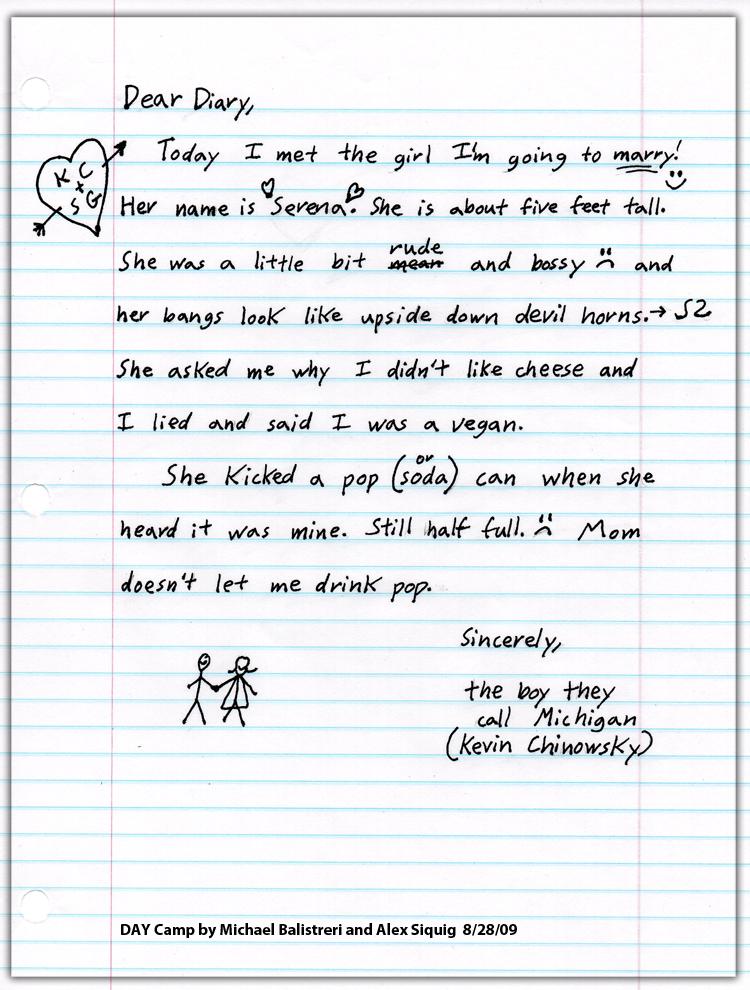 Dear Diary,
K C
+
S G
Today I met the girl I'm going to marry!
Her name is Serena. She is about five feet tall.
She was a little bit mean rude and bossy and
her bangs look like upside down devil horns.→
She asked me why I didn't like cheese and
I lied and said I was a vegan.
She kicked a pop (or soda) can when she
heard it was mine. Still half full. Mom
doesn't let me drink pop.
Sincerely,
the boy they
call Michigan
(Kevin Chinowsky)
DAY Camp by Michael Balistreri and Alex Siquig 8/28/09